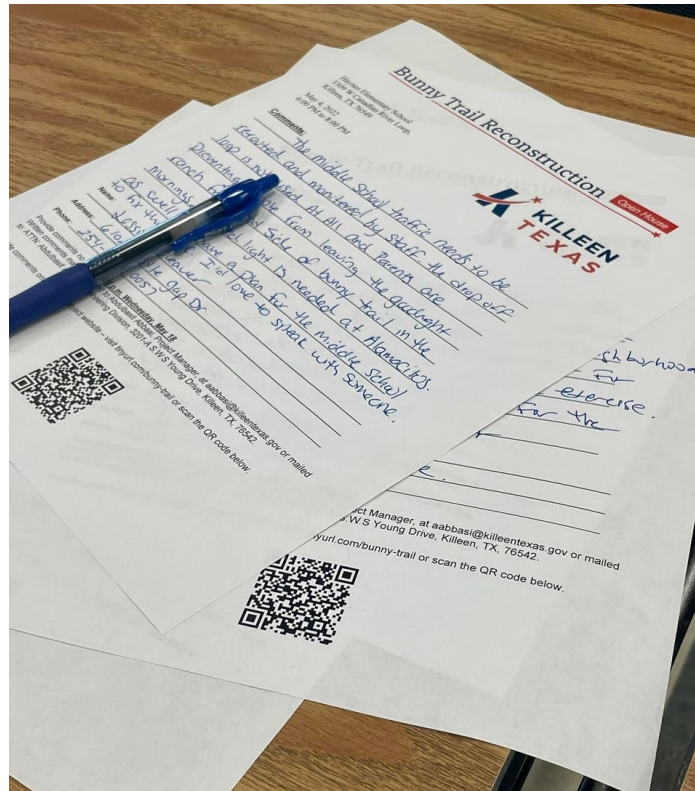 Bunny Trail Reconstruction
Open House
Haynes Elementary School
3309 W Canadian River Loop,
Killeen, TX 76549
May 4, 2022
6:00 PM to 8:00 PM
KILLEEN
TEXAS
Comments: The middle school traffic needs to be
rerouted and monitored by staff the drop off
loop is not used At All and Parents are
Preventing from leaving the goodnight
ranch side of bunny trail in the
mornings. light is needed at Alamocitos.
as swell have a plan for the middle school
to fix th I'd love to speak with someone.
Name: Jessi eaver
Address: gap Dr
Phone: 254-
Provide comments no p.m. Wednesday, May 18
Written comments ma to Abdulbasit Abbasi, Project Manager, at aabbasi@killeentexas.gov or mailed
to: ATTN: Abdulbasit neering Division, 3201-A S.W.S Young Drive, Killeen, TX, 76542.
comments on ject website – visit tinyurl.com/bunny-trail or scan the QR code below.
ghborhood
For
exercise.
For the
ect Manager, at aabbasi@killeentexas.gov or mailed
S.W.S Young Drive, Killeen, TX, 76542.
yurl.com/bunny-trail or scan the QR code below.